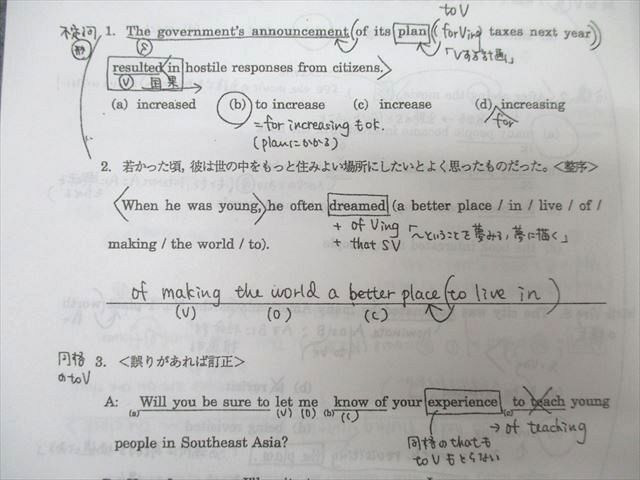 to V
不定詞
1. The government's announcement (of its plan (for Ving) taxes next year)
形 S 「Vする計画」
resulted in hostile responses from citizens.
V 因 果
(a) increased (b) to increase (c) increase (d) increasing
= for increasing も ok. for
(planにかかる)
2. 若かった頃,彼は世の中をもっと住みよい場所にしたいとよく思ったものだった。<整序>
When he was young, he often dreamed (a better place / in / live / of /
making / the world / to).
+ of Ving
+ that SV
「〜ということを夢みる,夢に描く」
of making the world a better place (to live in)
(V) (O) (C)
同格
のto V
3. <誤りがあれば訂正>
A: Will you be sure to let me know of your experience to teach young
(a) (V) (O) (b) (C) (c)
→ of teaching
people in Southeast Asia?
同格のthatも
to Vもとらない